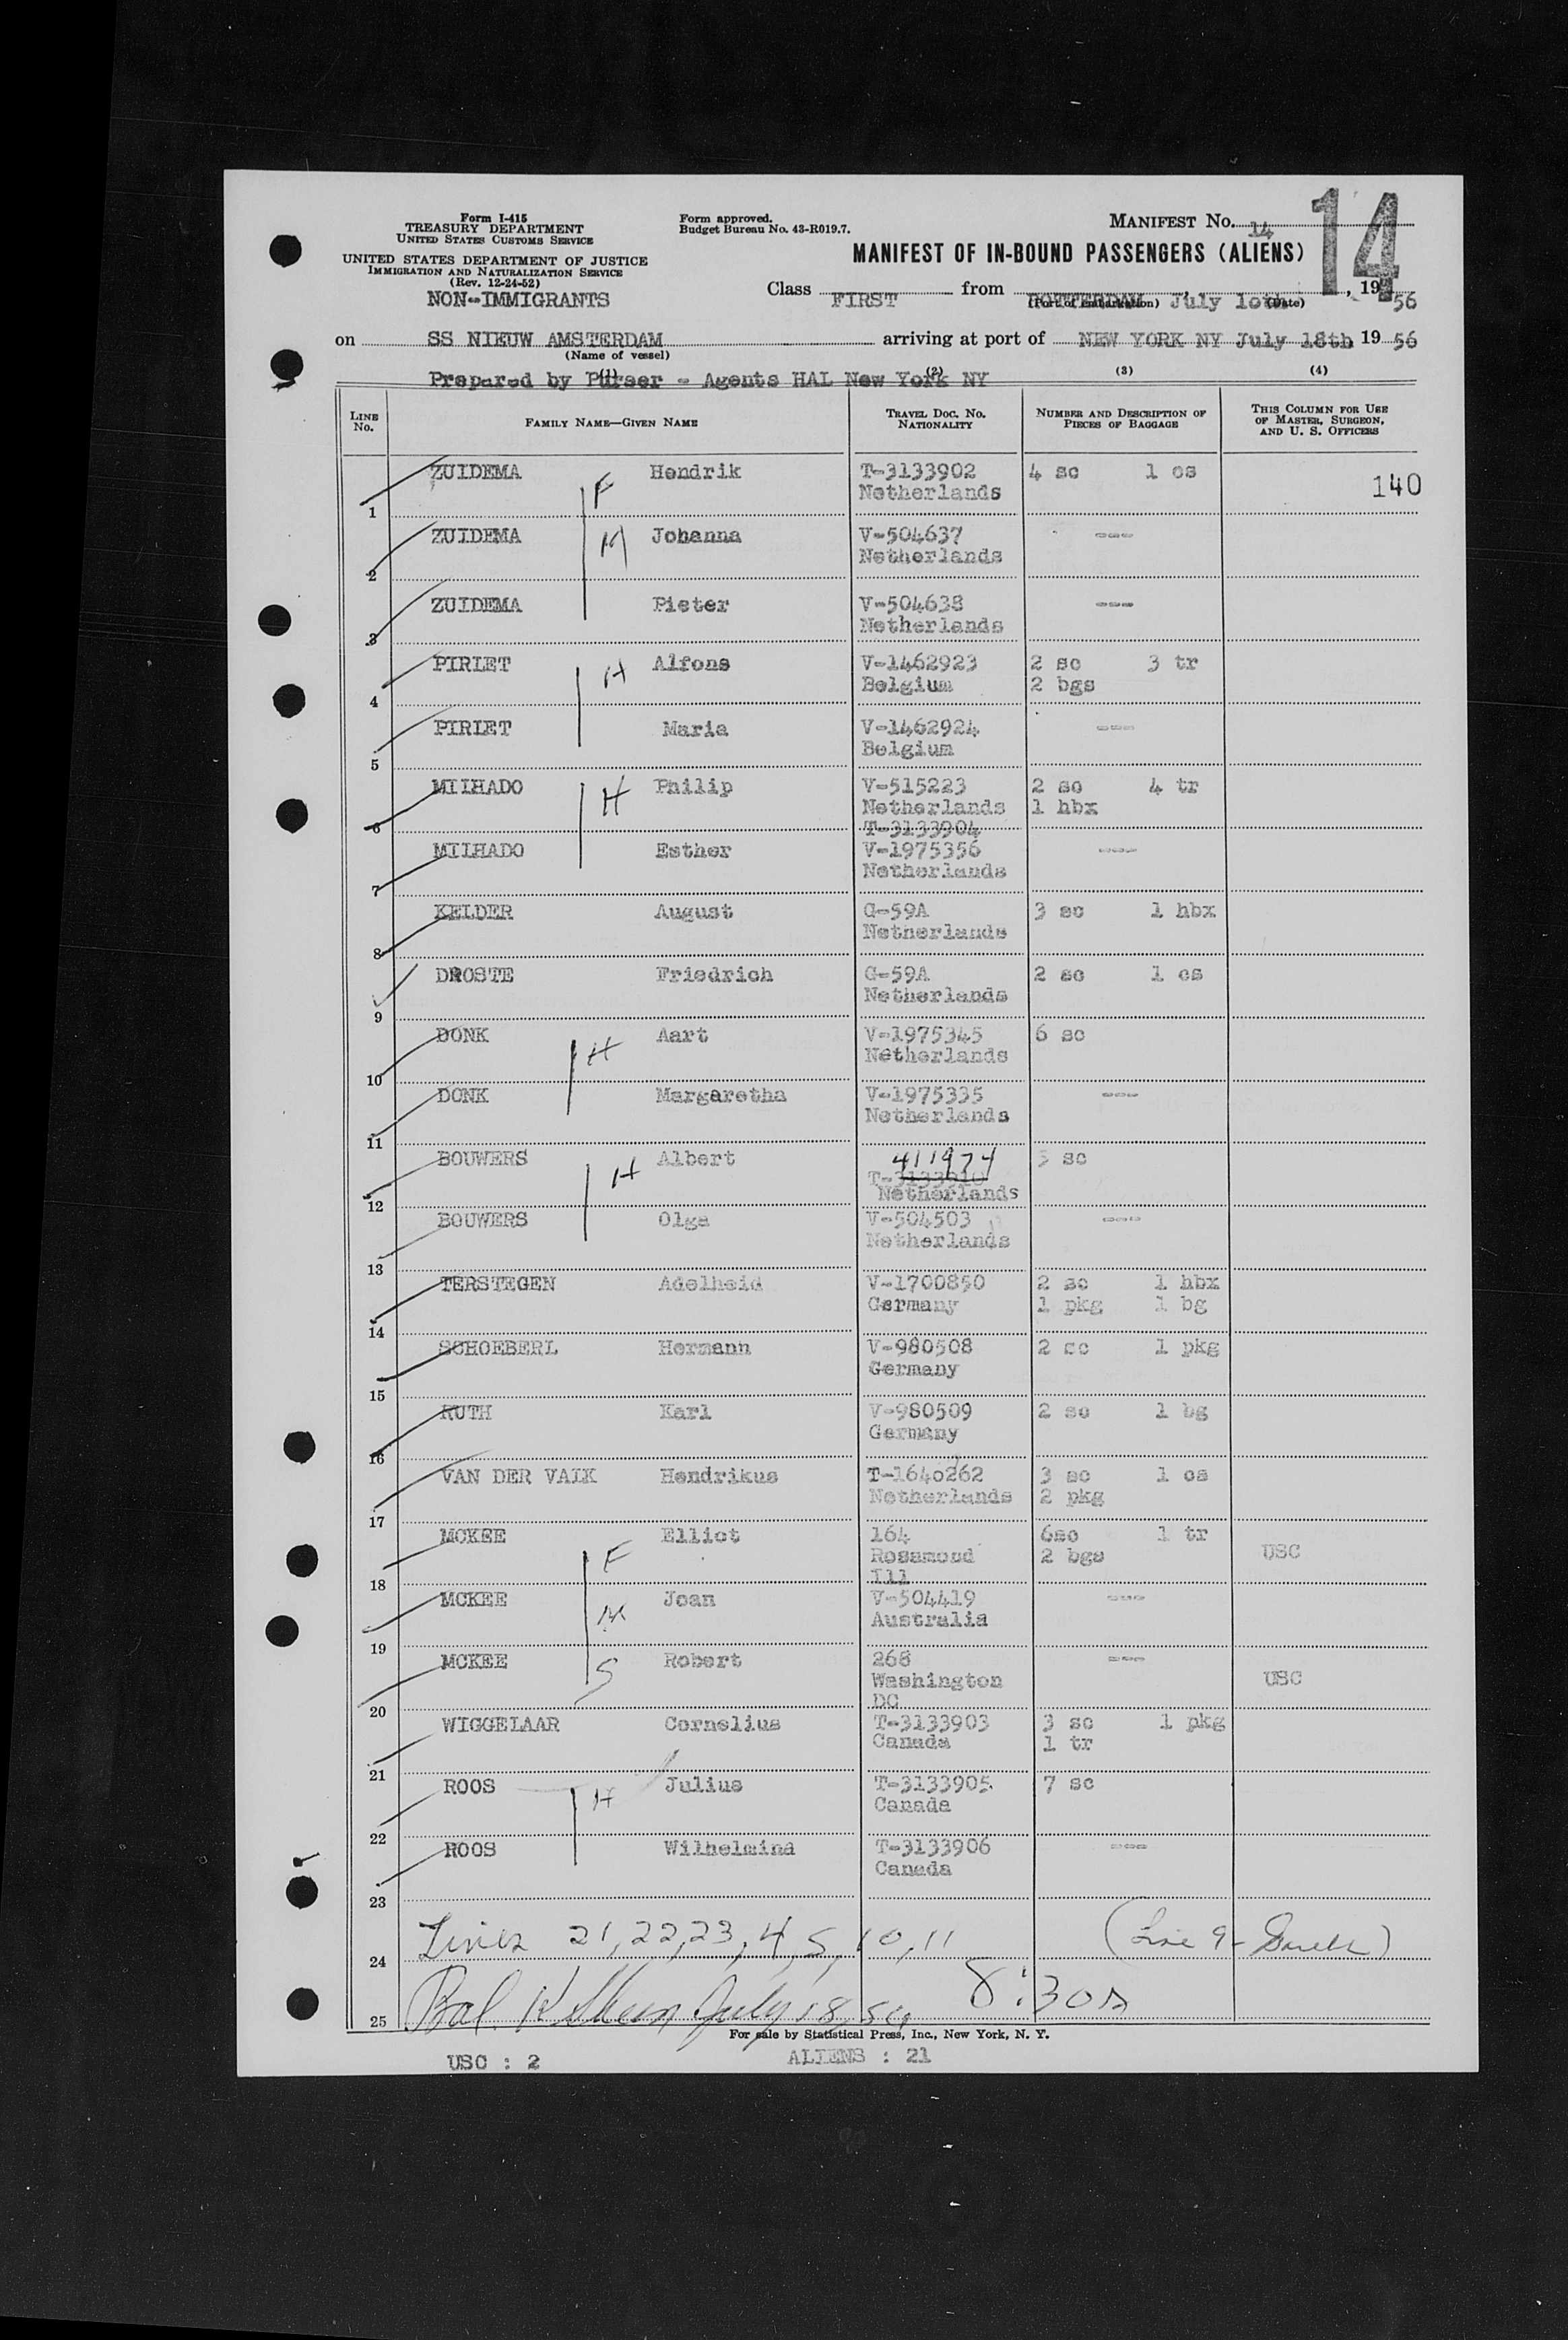 Form I-415
TREASURY DEPARTMENT
UNITED STATES CUSTOMS SERVICE
UNITED STATES DEPARTMENT OF JUSTICE
IMMIGRATION AND NATURALIZATION SERVICE
(Rev. 12-24-52)
NON-IMMIGRANTS
Form approved.
Budget Bureau No. 43-R019.7.
MANIFEST No. 14
14
MANIFEST OF IN-BOUND PASSENGERS (ALIENS)
Class FIRST from ROTTERDAM July 10th, 1956
(Port of embarkation) (Date)
on SS NIEUW AMSTERDAM arriving at port of NEW YORK NY July 18th 1956
(Name of vessel)
Prepared by Purser - Agents HAL New York NY
(1) (2) (3) (4)
LINE No. FAMILY NAME—GIVEN NAME TRAVEL DOC. NO. NATIONALITY NUMBER AND DESCRIPTION OF PIECES OF BAGGAGE THIS COLUMN FOR USE OF MASTER, SURGEON, AND U. S. OFFICERS
ZUIDEMA F Hendrik T-3133902 4 sc 1 cs 140
1 Netherlands
ZUIDEMA M Johanna V-504637 ---
2 Netherlands
ZUIDEMA Pieter V-504638 ---
3 Netherlands
PIRLET H Alfons V-1462923 2 sc 3 tr
4 Belgium 2 bgs
PIRLET Maria V-1462924 ---
5 Belgium
MILHADO H Philip V-515223 2 sc 4 tr
6 Netherlands 1 hbx
T-3133904
MILHADO Esther V-1975356 ---
7 Netherlands
KELDER August G-59A 3 sc 1 hbx
8 Netherlands
DROSTE Friedrich G-59A 2 sc 1 cs
9 Netherlands
DONK H Aart V-1975345 6 sc
10 Netherlands
DONK Margaretha V-1975335 ---
11 Netherlands
BOUWERS H Albert 411974 5 sc
T-3133910
12 Netherlands
BOUWERS Olga V-504503 ---
13 Netherlands
TERSTEGEN Adelheid V-1700850 2 sc 1 hbx
14 Germany 1 pkg 1 bg
SCHOEBERL Hermann V-980508 2 sc 1 pkg
15 Germany
RUTH Karl V-980509 2 sc 1 bg
16 Germany
VAN DER VALK Hendrikus T-1640262 3 sc 1 cs
17 Netherlands 2 pkg
MCKEE F Elliot 164 6sc 1 tr
Rosamond 2 bgs USC
18 Ill
MCKEE M Joan V-504419 ---
19 Australia
MCKEE S Robert 268 ---
Washington USC
20 DC
WIGGELAAR Cornelius T-3133903 3 sc 1 pkg
21 Canada 1 tr
ROOS H Julius T-3133905 7 sc
22 Canada
ROOS Wilhelmina T-3133906 ---
23 Canada
24 Lines 21, 22, 23, 4, 5, 10, 11 (Line 9-
25 Bal. July 18, 56 8:30
For sale by Statistical Press, Inc., New York, N. Y.
USC : 2 ALIENS : 21